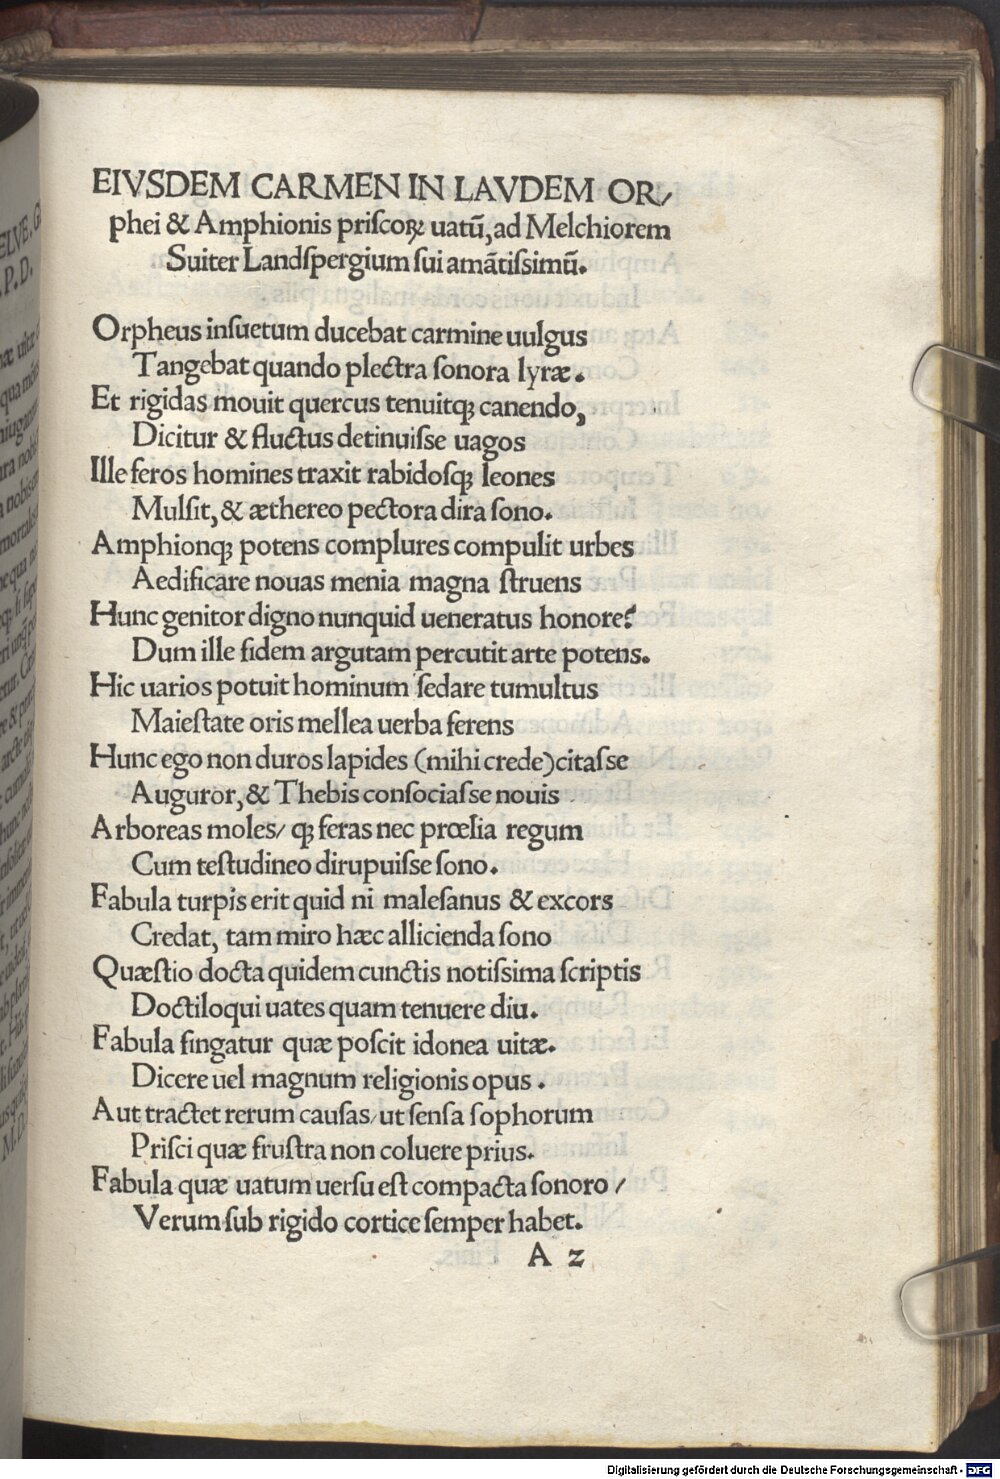 EIVSDEM CARMEN IN LAVDEM OR/
phei & Amphionis priſcoꝝ uatū, ad Melchiorem
Suiter Landſpergium ſui amātiſsimū.
Orpheus inſuetum ducebat carmine uulgus
Tangebat quando plectra ſonora lyræ.
Et rigidas mouit quercus tenuitqꝫ canendo,
Dicitur & fluctus detinuiſse uagos
Ille feros homines traxit rabidoſqꝫ leones
Mulſit, & æthereo pectora dira ſono.
Amphionqꝫ potens complures compulit urbes
Aedificare nouas menia magna ſtruens
Hunc genitor digno nunquid ueneratus honore?
Dum ille fidem argutam percutit arte potens.
Hic uarios potuit hominum ſedare tumultus
Maieſtate oris mellea uerba ferens
Hunc ego non duros lapides (mihi crede) citaſse
Auguror, & Thebis conſociaſse nouis
Arboreas moles/ qꝫ feras nec prœlia regum
Cum teſtudineo dirupuiſse ſono.
Fabula turpis erit quid ni maleſanus & excors
Credat, tam miro hæc allicienda ſono
Quæſtio docta quidem cunctis notiſsima ſcriptis
Doctiloqui uates quam tenuere diu.
Fabula fingatur quæ poſcit idonea uitæ.
Dicere uel magnum religionis opus.
Aut tractet rerum cauſas/ ut ſenſa ſophorum
Priſci quæ fruſtra non coluere prius.
Fabula quæ uatum uerſu eſt compacta ſonoro /
Verum ſub rigido cortice ſemper habet.
A 2
Digitalisierung gefördert durch die Deutsche Forschungsgemeinschaft - DFG